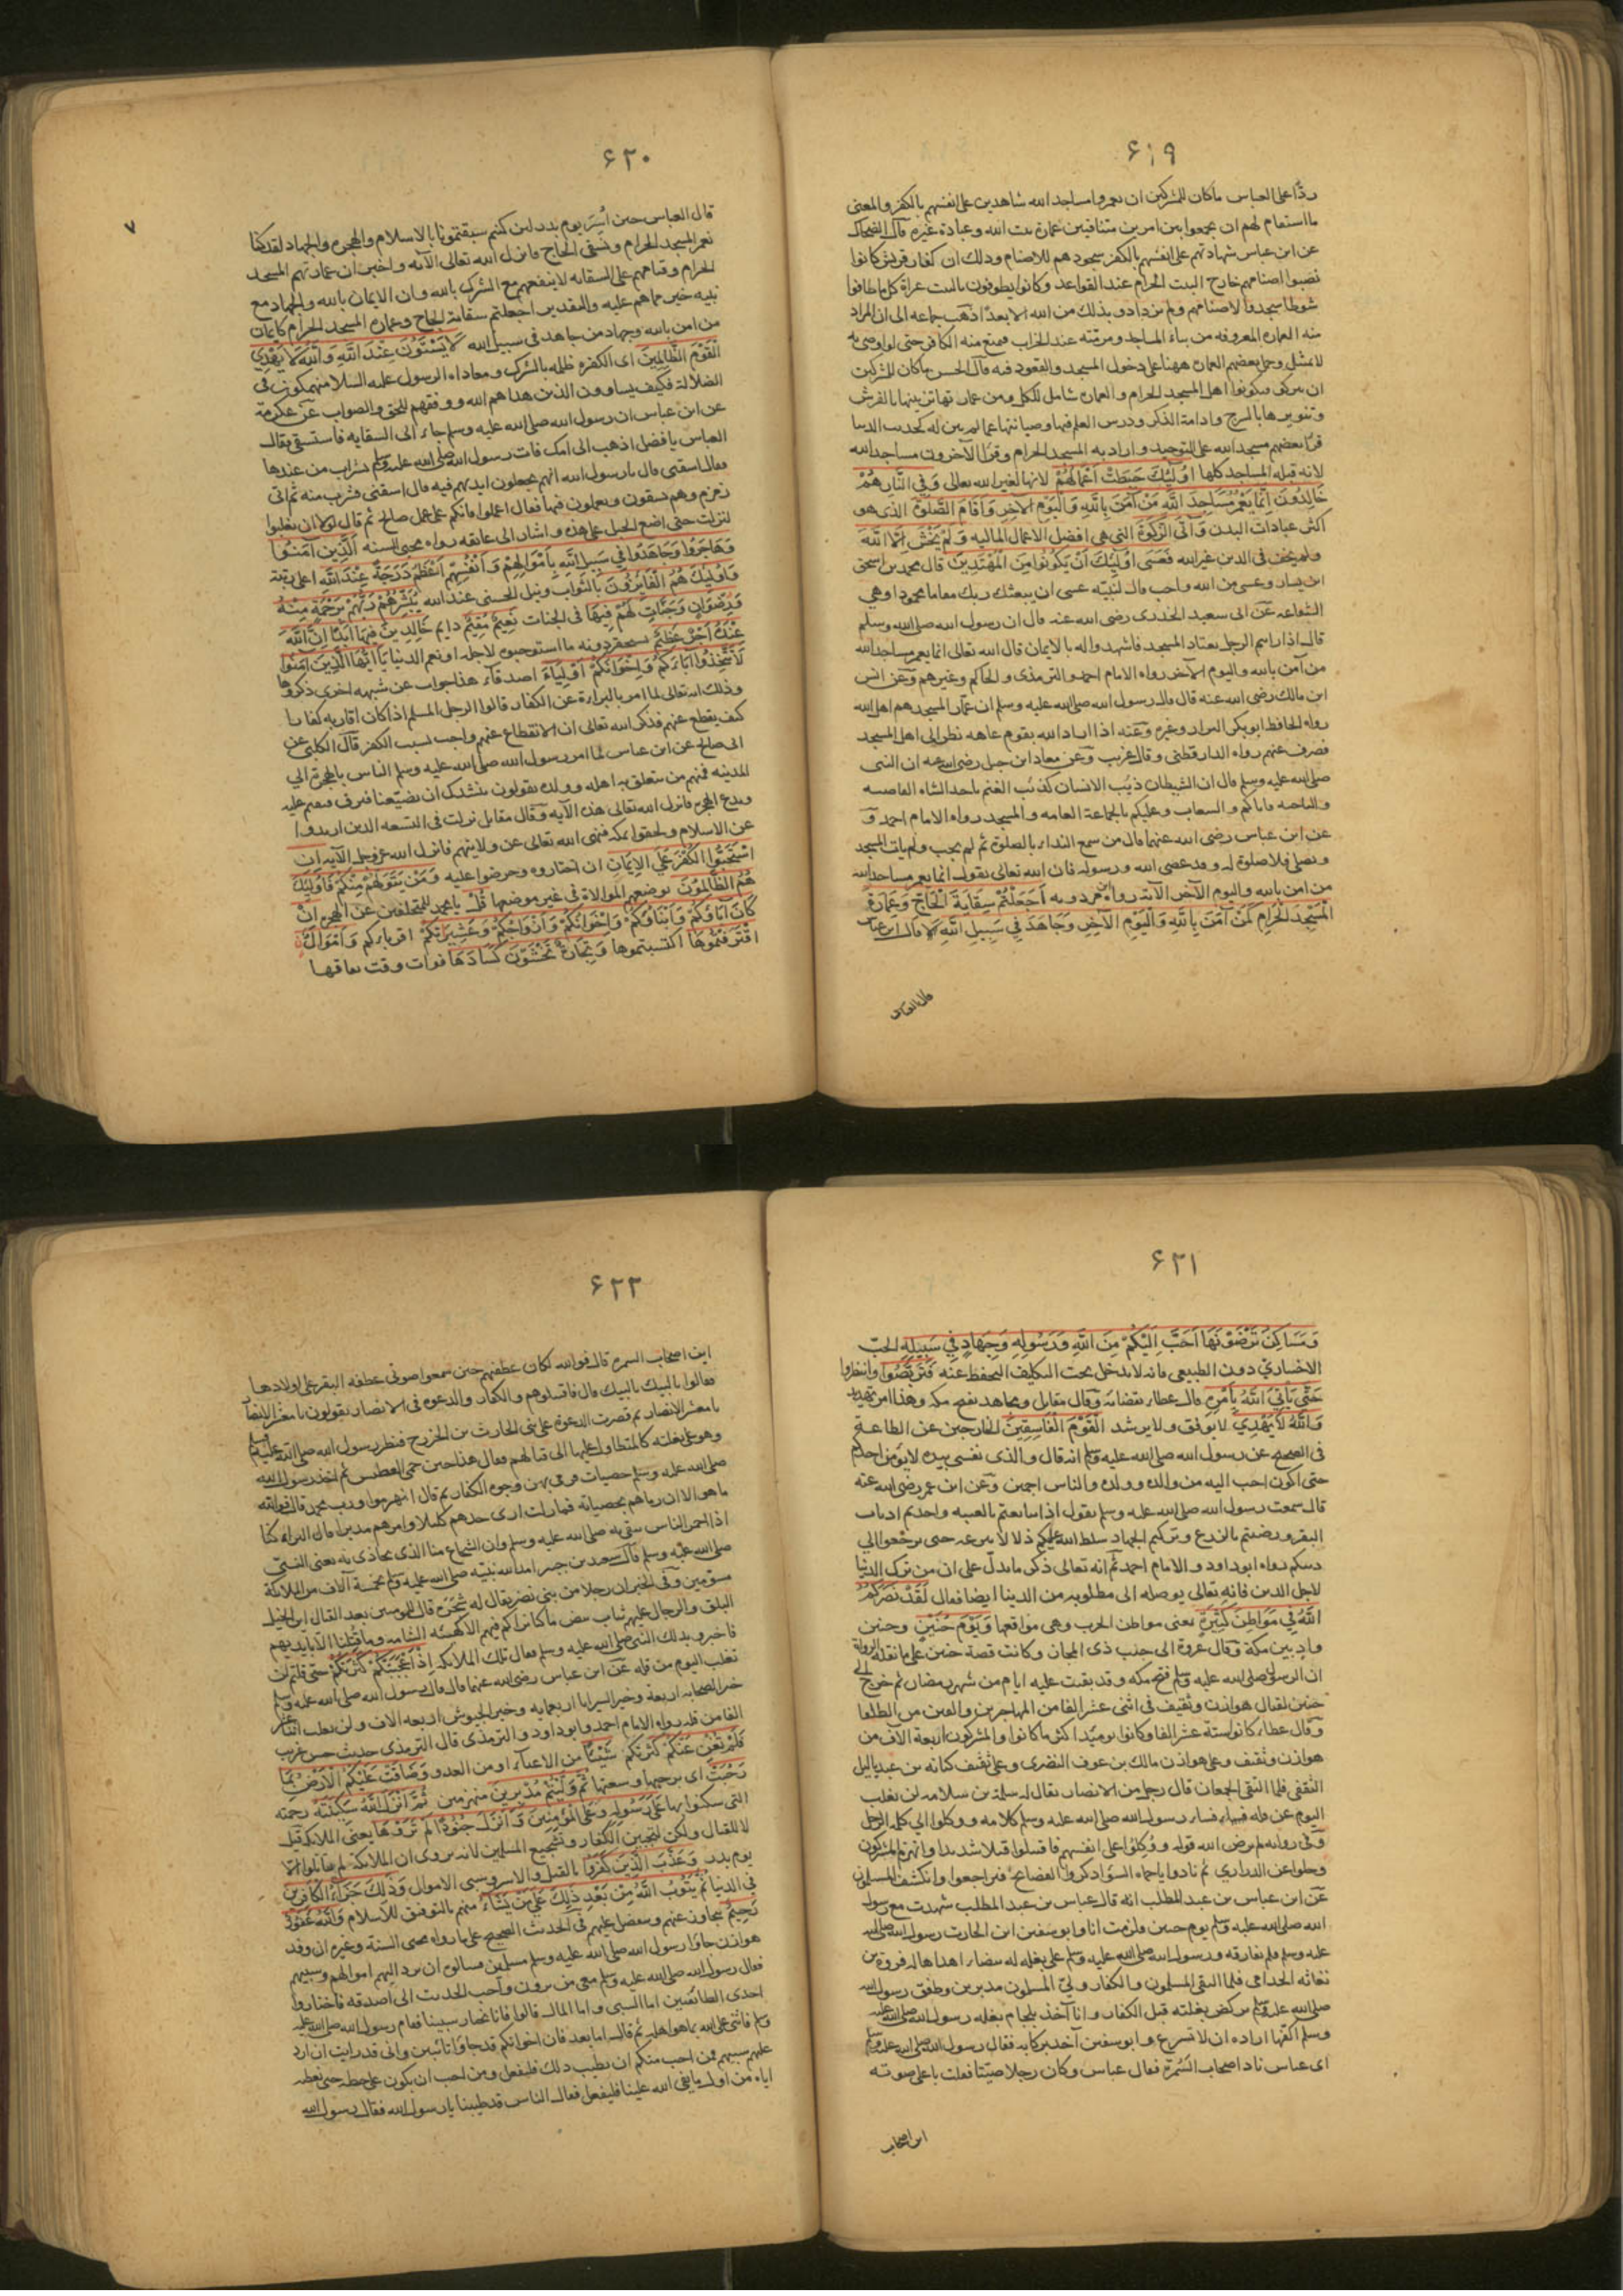 ۶۱۹
ردًّا على العباس ماكان للمشركين ان يعمروا مساجد الله شاهدين على انفسهم بالكفر والمعنى
ما استقام لهم ان يجمعوا بين امرين متنافيين عمارة بيت الله وعبادة غيره قال الضحاك
عن ابن عباس شهادتهم على انفسهم بالكفر سجودهم للاصنام وذلك ان كفار قريش كانوا
نصبوا اصنامهم خارج البيت الحرام عند القواعد وكانوا يطوفون بالبيت عراة كل ما طافوا
شوطا سجدوا لاصنامهم ولم يزدادو بذلك من الله الا بعدًا ذهب جماعه الى ان المراد
منه العماره المعروفه من بناء المساجد ومرمته عند الخراب فيمنع منه الكافر حتى لو اوصى به
لا يمتثل وحمل بعضهم العمارة ههنا على دخول المسجد والقعود فيه قال الحسن ماكان للمشركين
ان يتركوا فيكونوا اهل المسجد الحرام والعمارة شامل للكل ومن عمارتها تزيينها بالفرش
وتنويرها بالسرج وادامة الذكر ودرس العلم فيها وصيانتها عما لم يبن له كحديث الدنيا
قرأ بعضهم مسجد الله على التوحيد واراد به المسجد الحرام وقرأ الآخرون مساجد الله
لانه قبله المساجد كلها اُولٰئِكَ حَبِطَتْ اَعْمَالُهُمْ لانها لغير الله تعالى وَفِي النَّارِ هُمْ
خَالِدُونَ اِنَّمَا يَعْمُرُ مَسَاجِدَ اللَّهِ مَنْ آمَنَ بِاللَّهِ وَالْيَوْمِ الآخِرِ وَاَقَامَ الصَّلٰوةَ الذى هو
اكثر عبادات البدن وَآتَى الزَّكٰوةَ التى هى افضل الاعمال الماليه وَلَمْ يَخْشَ اِلَّا اللهَ
ولم يخف فى الدين غير الله فَعَسَى اُولٰئِكَ اَنْ يَكُونُوا مِنَ الْمُهْتَدِينَ قال محمد بن اسحق
ابن يسار وعسى من الله واجب قال لنبيّه عسى ان يبعثك ربك مقاما محمودا وهى
الشفاعه عن ابى سعيد الخدرى رضى الله عنه قال ان رسول الله صلى الله عليه وسلم
قال اذا راىتم الرجل يعتاد المسجد فاشهدوا له بالايمان قال الله تعالى انما يعمر مساجد الله
من آمن بالله واليوم الآخر رواه الامام احمد والترمذى والحاكم وغيرهم وعن انس
ابن مالك رضى الله عنه قال قال رسول الله صلى الله عليه وسلم ان عمار المسجد هم اهل الله
رواه الحافظ ابوبكر البزار وغيره وعنه اذا اراد الله بقوم عاهه نظر الى اهل المسجد
فصرف عنهم رواه الدارقطنى وقال غريب وعن معاذ ابن جبل رضى الله عنه ان النبى
صلى الله عليه وسلم قال ان الشيطان ذئب الانسان كذئب الغنم ياخذ الشاه القاصيه
والناحيه فاياكم والشعاب وعليكم بالجماعة العامه والمسجد رواه الامام احمد و
عن ابن عباس رضى الله عنهما قال من سمع النداء بالصلوة ثم لم يجب ولم يات المسجد
ويصلى فلا صلوة له وقد عصى الله ورسوله فان الله تعالى يقول انما يعمر مساجد الله
من امن بالله واليوم الآخر الآيه رواه ابن مردويه اَجَعَلْتُمْ سِقَايَةَ الْحَاجِّ وَعِمَارَةَ
الْمَسْجِدِ الْحَرَامِ كَمَنْ اٰمَنَ بِاللَّهِ وَالْيَوْمِ الْآخِرِ وَجَاهَدَ فِي سَبِيلِ اللَّهِ قال ابن عباس
قال العباس
۶۲۰
۷
قال العباس حين اُسِرَ يوم بدر لئن كنتم سبقتمونا بالاسلام والهجره والجهاد لقد كنا
نعمر المسجد الحرام ونسقى الحاج فانزل الله تعالى الآيه واخبر ان عمارتهم المسجد
الحرام وقيامهم على السقايه لا ينفعهم مع الشرك بالله وان الايمان بالله والجهاد مع
نبيه خير مما هم عليه والتقدير اجعلتم سقاية الحاج وعماره المسجد الحرام كايمان
من امن بالله وجهاد من جاهد فى سبيل الله لَا يَسْتَوُونَ عِنْدَ اللَّهِ وَاللَّهُ لَا يَهْدِي
الْقَوْمَ الظَّالِمِينَ اى الكفره ظلمه بالشرك ومعاداه الرسول عليه السلام منهمكون فى
الضلالة فكيف يساوون الذين هداهم الله ووفقهم للحق والصواب عن عكرمة
عن ابن عباس ان رسول الله صلى الله عليه وسلم جاء الى السقايه فاستسقى فقال
العباس يا فضل اذهب الى امك فات رسول الله صلى الله عليه وسلم بشراب من عندها
فقال اسقنى قال يا رسول الله انهم يجعلون ايديهم فيه قال اسقنى فشرب منه ثم اتى
زمزم وهم يسقون ويعملون فيها فقال اعملوا فانكم على عمل صالح ثم قال لولا ان تغلبوا
لنزلت حتى اضع الحبل على هذه واشار الى عاتقه رواه محيى السنه اَلَّذِينَ اٰمَنُوا
وَهَاجَرُوا وَجَاهَدُوا فِي سَبِيلِ اللَّهِ بِاَمْوَالِهِمْ وَاَنْفُسِهِمْ اَعْظَمُ دَرَجَةً عِنْدَ اللَّهِ اعلى رتبة
وَاُولٰئِكَ هُمُ الْفَائِزُونَ بالثواب ونيل الحسنى عند الله يُبَشِّرُهُمْ رَبُّهُمْ بِرَحْمَةٍ مِنْهُ
وَرِضْوَانٍ وَجَنَّاتٍ لَهُمْ فِيهَا فى الجنات نَعِيمٌ مُقِيمٌ دايم خَالِدِينَ فِيهَا اَبَدًا اِنَّ اللَّهَ
عِنْدَهُ اَجْرٌ عَظِيمٌ يستحقر دونه ما استوجبوه لاجله او نعم الدنيا يَا اَيُّهَا الَّذِينَ اٰمَنُوا
لَا تَتَّخِذُوا اٰبَاءَكُمْ وَاِخْوَانَكُمْ اَوْلِيَاءَ اصدقاء هذا جواب عن شبهه اخرى ذكروها
وذلك انه تعالى لما امر بالبراءة عن الكفار قالوا الرجل المسلم اذا كان اقاربه كفارا
كيف يقطع عنهم فذكر الله تعالى ان الانقطاع عنهم واجب بسبب الكفر قال الكلبى عن
ابى صالح عن ابن عباس لما امر رسول الله صلى الله عليه وسلم الناس بالهجرة الى
المدينه فمنهم من يتعلق به اهله وولده يقولون ننشدك ان تضيّعنا فيرق فيقيم عليه
ويدع الهجره فانزل الله تعالى هذه الآيه وقال مقاتل نزلت فى التسعه الذين ارتدوا
عن الاسلام ولحقوا بمكه فنهى الله تعالى عن ولايتهم فانزل الله عز وجل الآيه ان
اسْتَحَبُّوا الْكُفْرَ عَلَى الْاِيمَانِ ان اختاروه وحرضوا عليه وَمَنْ يَتَوَلَّهُمْ مِنْكُمْ فَاُولٰئِكَ
هُمُ الظَّالِمُونَ بوضعهم الموالاة فى غير موضعها قُلْ يا محمد للمتخلفين عن الهجره اِنْ
كَانَ اٰبَاؤُكُمْ وَاَبْنَاؤُكُمْ وَاِخْوَانُكُمْ وَاَزْوَاجُكُمْ وَعَشِيرَتُكُمْ اقرباءكم وَاَمْوَالٌ
اقْتَرَفْتُمُوهَا اكتسبتموها وَتِجَارَةٌ تَخْشَوْنَ كَسَادَهَا فوات وقت نفاقها
۶۲۱
وَمَسَاكِنُ تَرْضَوْنَهَا اَحَبَّ اِلَيْكُمْ مِنَ اللَّهِ وَرَسُولِهِ وَجِهَادٍ فِي سَبِيلِهِ الحبّ
الاختيارى دون الطبيعى فانه لا يدخل تحت التكليف التحفظ عنه فَتَرَبَّصُوا وانتظروا
حَتَّى يَأْتِيَ اللَّهُ بِاَمْرِهِ قال عطاء بقضائه وقال مقاتل ومجاهد بفتح مكه وهذا امر تهديد
وَاللَّهُ لَا يَهْدِي لا يوفق ولا يرشد الْقَوْمَ الْفَاسِقِينَ الخارجين عن الطاعة
فى الصحيح عن رسول الله صلى الله عليه وسلم انه قال والذى نفسى بيده لا يؤمن احدكم
حتى اكون احب اليه من والده وولده والناس اجمعين وعن ابن عمر رضى الله عنه
قال سمعت رسول الله صلى الله عليه وسلم يقول اذا تبايعتم بالعينه واخذتم اذناب
البقر ورضيتم بالزرع وتركتم الجهاد سلط الله عليكم ذلا لا ينزعه حتى ترجعوا الى
دينكم رواه ابو داود والامام احمد ثم انه تعالى ذكر ما يدلّ على ان من ترك الدنيا
لاجل الدين فانه تعالى يوصله الى مطلوبه من الدينا ايضا فقال لَقَدْ نَصَرَكُمُ
اللَّهُ فِي مَوَاطِنَ كَثِيرَةٍ يعنى مواطن الحرب وهى مواقعها وَيَوْمَ حُنَيْنٍ وحنين
واد بين مكة وقال عروة الى جنب ذى المجاز وكانت قصة حنين على ما نقله الرواة
ان الرسول صلى الله عليه وسلم فتح مكه وقد بقيت عليه ايام من شهر رمضان ثم خرج الى
حنين لقتال هوازن وثقيف فى اثنى عشر الفا من المهاجرين والفين من الطلقا
وقال عطاء كانوا ستة عشر الفا وكانوا يوميذ اكثر ما كانوا والمشركون اربعة الاف من
هوازن وثقيف وعلى هوازن مالك بن عوف النضرى وعلى ثقيف كنانه بن عبد ياليل
الثقفى فلما التقى الجمعان قال رجل من الانصار يقال له سلمة بن سلامه لن نغلب
اليوم عن قله فساء رسول الله صلى الله عليه وسلم كلامه ووكلوا الى كلمه الرجل
وفى روايه لم يرض الله قوله ووُكِلُوا على انفسهم فاقتتلوا قتالا شديدا وانهزم المشركون
وخلوا عن الذرارى ثم نادوا يا حماه السواد اذكروا الفضايح فتراجعوا وانكشف المسلمون
عن ابن عباس بن عبد المطلب انه قال عباس بن عبد المطلب شهدت مع رسول
الله صلى الله عليه وسلم يوم حنين فلزمت انا وابو سفين ابن الحارث رسول الله صلى الله
عليه وسلم فلم نفارقه ورسول الله صلى الله عليه وسلم على بغله له بيضاء اهداها له فروة بن
نفاثه الجذامى فلما التقى المسلمون والكفار وليّ المسلمون مدبرين وطفق رسول الله
صلى الله عليه وسلم يركض بغلته قبل الكفار وانا آخذ بلجام بغله رسول الله صلى الله عليه
وسلم اكفها اراده ان لا تسرع وابو سفين آخذ بركابه فقال رسول الله صلى الله عليه وسلم
اى عباس ناد اصحاب السَّمُرة فقال عباس وكان رجلا صيّتا فقلت باعلى صوته
اين اصحاب
۶۲۲
اين اصحاب السمره قال فوالله لكان عطفتهم حين سمعوا صوتى عطفة البقر على اولادها
فقالوا يا لبيك يا لبيك قال فاقتتلوهم والكفار والدعوه فى الانصار يقولون يا معشر الانصار
يا معشر الانصار ثم قصرت الدعوة على بنى الحارث بن الخزرج فنظر رسول الله صلى الله عليه وسلم
وهو على بغلته كالمتطاول عليها الى قتالهم فقال هذا حين حمى الوطيس ثم اخذ رسول الله
صلى الله عليه وسلم حصيات فرمى بهن وجوه الكفار ثم قال انهزموا ورب محمد قال فوالله
ما هو الا ان رماهم بحصياته فما زلت ارى حدهم كليلا وامرهم مدبرا قال البراء كنا
اذا احمر الناس نتقى به صلى الله عليه وسلم وان الشجاع منا الذى يحاذى به يعنى النبىّ
صلى الله عليه وسلم قال سعيد بن جبير امد الله نبيّه صلى الله عليه وسلم بخمسة آلاف من الملائكة
مسوّمين وفى الخبر ان رجلا من بنى نضر يقال له شجره قال للمومنين بعد القتال اين الخيل
البلق والرجال عليهم ثياب بيض ما كنا نراكم فيهم الا كهيئه الشامه وما قتلنا الا بايديهم
فاخبرو بذلك النبى صلى الله عليه وسلم فقال تلك الملائكه اِذْ اَعْجَبَتْكُمْ كَثْرَتُكُمْ حتى قلتم لن
نغلب اليوم من قله عن ابن عباس رضى الله عنهما قال قال رسول الله صلى الله عليه وسلم
خير الصحابه اربعة وخير السرايا اربعمايه وخير الجيوش اربعه الاف ولن يغلب اثنا عشر
الفا من قله رواه الامام احمد وابو داود والترمذى قال الترمذى حديث حسن غريب
فَلَمْ تُغْنِ عَنْكُمْ كثرتكم شَيْئًا من الاغناء او من العدو وَضَاقَتْ عَلَيْكُمُ الْاَرْضُ بِمَا
رَحُبَتْ اى برحبها وسعتها ثُمَّ وَلَّيْتُمْ مُدْبِرِينَ منهزمين ثُمَّ اَنْزَلَ اللَّهُ سَكِينَتَهُ رحمته
التى سكنوا بها عَلَى رَسُولِهِ وَعَلَى الْمُؤْمِنِينَ وَاَنْزَلَ جُنُودًا لَمْ تَرَوْهَا يعنى الملائكه قيل
لا للقتال ولكن لتجبين الكفار وتشجيع المسلمين لانه يروى ان الملائكة لم يقاتلوا الا
يوم بدر وَعَذَّبَ الَّذِينَ كَفَرُوا بالقتل والاسر وسبى الاموال وَذٰلِكَ جَزَاءُ الْكَافِرِينَ
فى الدنيا ثُمَّ يَتُوبُ اللَّهُ مِنْ بَعْدِ ذٰلِكَ عَلَى مَنْ يَشَاءُ منهم بالتوفيق للاسلام وَاللَّهُ غَفُورٌ
رَحِيمٌ يتجاوز عنهم ويتفضل عليهم فى الحديث الصحيح على ما رواه محيى السنة وغيره ان وفد
هوازن جاؤا رسول الله صلى الله عليه وسلم مسلمين فسالوه ان يرد اليهم اموالهم وسبيهم
فقال رسول الله صلى الله عليه وسلم معى من ترون واحب الحديث الى اصدقه فاختاروا
احدى الطائفتين اما السبى واما المال قالوا فانا نختار سبينا فقام رسول الله صلى الله عليه
وسلم فاثنى على الله بما هو اهله ثم قال اما بعد فان اخوانكم قد جاؤا تائبين وانى قد رايت ان ارد
عليهم سبيهم فمن احب منكم ان يطيب ذلك فليفعل ومن احب ان يكون على حظه حتى نعطيه
اياه من اول ما يفىء الله علينا فليفعل فقال الناس قد طيبنا يا رسول الله فقال رسول الله